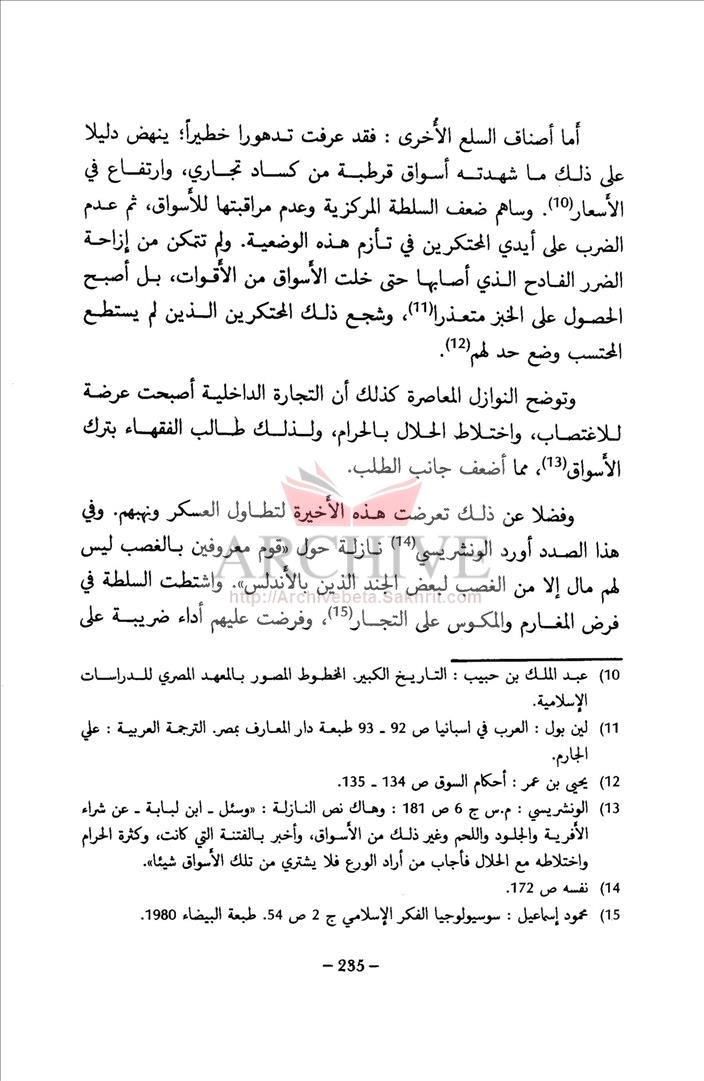 أما أصناف السلع الأخرى : فقد عرفت تدهورا خطيراً؛ ينهض دليلا
على ذلك ما شهدته أسواق قرطبة من كساد تجاري، وارتفاع في
الأسعار(10). وساهم ضعف السلطة المركزية وعدم مراقبتها للأسواق، ثم عدم
الضرب على أيدي المحتكرين في تأزم هذه الوضعية. ولم تتمكن من إزاحة
الضرر الفادح الذي أصابها حتى خلت الأسواق من الأقوات، بل أصبح
الحصول على الخبز متعذرا(11)، وشجع ذلك المحتكرين الذين لم يستطع
المحتسب وضع حد لهم(12).
وتوضح النوازل المعاصرة كذلك أن التجارة الداخلية أصبحت عرضة
للاغتصاب، واختلاط الحلال بالحرام، ولذلك طالب الفقهاء بترك
الأسواق(13)، مما أضعف جانب الطلب.
وفضلا عن ذلك تعرضت هذه الأخيرة لتطاول العسكر ونهبهم. وفي
هذا الصدد أورد الونشريسي(14) نازلة حول «قوم معروفين بالغصب ليس
لهم مال إلا من الغصب لبعض الجند الذين بالأندلس». واشتطت السلطة في
فرض المغارم والمكوس على التجار(15)، وفرضت عليهم أداء ضريبة على
ARCHIVE
http://Archivebeta.Sakhrit.com
10) عبد الملك بن حبيب : التاريخ الكبير. المخطوط المصور بالمعهد المصري للدراسات
الإسلامية.
11) لين بول : العرب في اسبانيا ص 92 ـ 93 طبعة دار المعارف بمصر. الترجمة العربية : علي
الجارم.
12) يحيى بن عمر : أحكام السوق ص 134 ـ 135.
13) الونشريسي : م.س ج 6 ص 181 : وهاك نص النازلة : «وسئل ـ ابن لبابة ـ عن شراء
الأفرية والجلود واللحم وغير ذلك من الأسواق، وأخبر بالفتنة التي كانت، وكثرة الحرام
واختلاطه مع الحلال فأجاب من أراد الورع فلا يشتري من تلك الأسواق شيئا».
14) نفسه ص 172.
15) محمود إسماعيل : سوسيولوجيا الفكر الإسلامي ج 2 ص 54. طبعة البيضاء 1980.
– 235 –